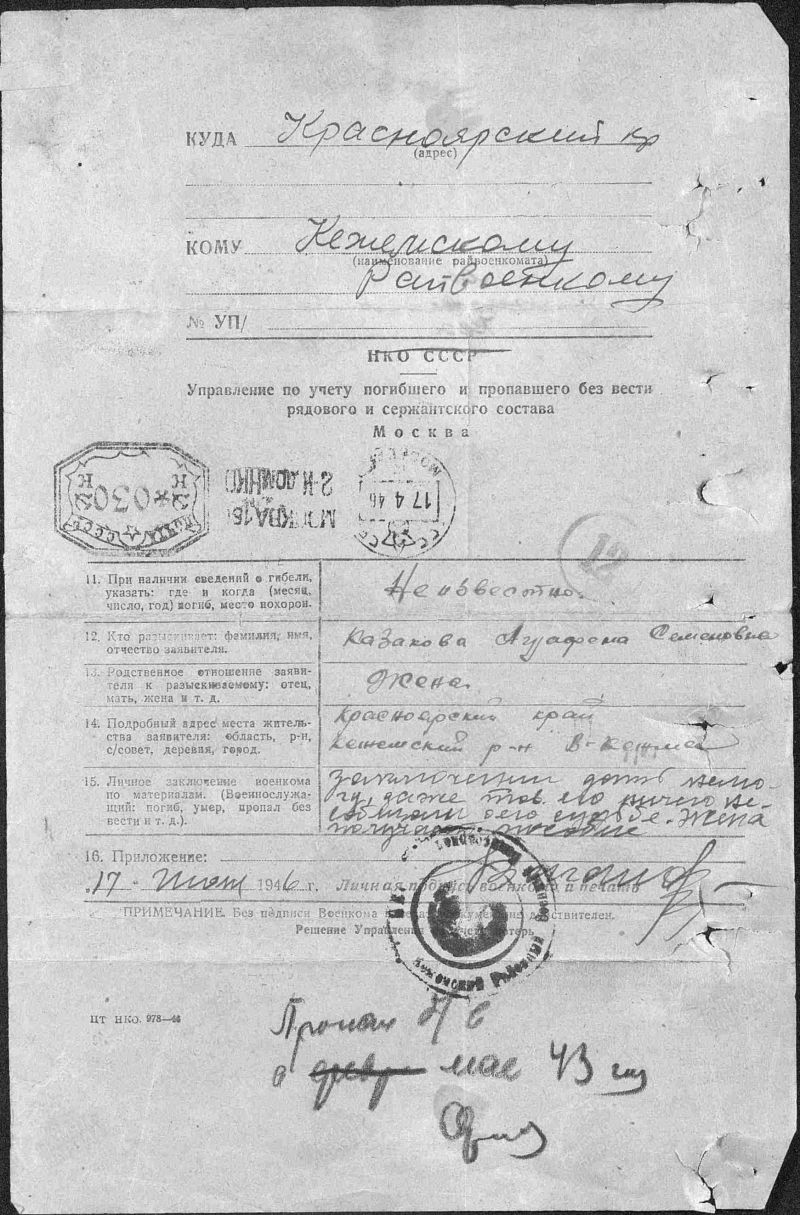 КУДА Красноярский кр
(адрес)
КОМУ Кежемскому
(наименование райвоенкомата)
Райвоенкому
№ УП/
НКО СССР
Управление по учету погибшего и пропавшего без вести
рядового и сержантского состава
Москва
ПОЧТА СССР
К 030 К
МОСКВА
17 4 46
12
11. При наличии сведений о гибели,
указать: где и когда (месяц,
число, год) погиб, место похорон.
Неизвестно.
12. Кто разыскивает: фамилия, имя,
отчество заявителя.
Казакова Аграфена Семеновна
13. Родственное отношение заяви-
теля к разыскиваемому: отец,
мать, жена и т. д.
Жена
14. Подробный адрес места житель-
ства заявителя: область, р-н,
с/совет, деревня, город.
Красноярский край
Кежемский р-н В-Кежма
15. Личное заключение военкома
по материалам. (Военнослужа-
щий: погиб, умер, пропал без
вести и т. д.).
заключении дать немо-
гу, даже тов. его ничего не
о его судьбе. Жена
получает пособие
16. Приложение:
17 - 1946 г. Личная подпись военкома и печать
ПРИМЕЧАНИЕ. Без подписи Военкома и печати документ не действителен.
Решение Управления по учету потерь
Кежемский Районный
ЦТ НКО. 978—46
Пропал б/в
в февр мае 43